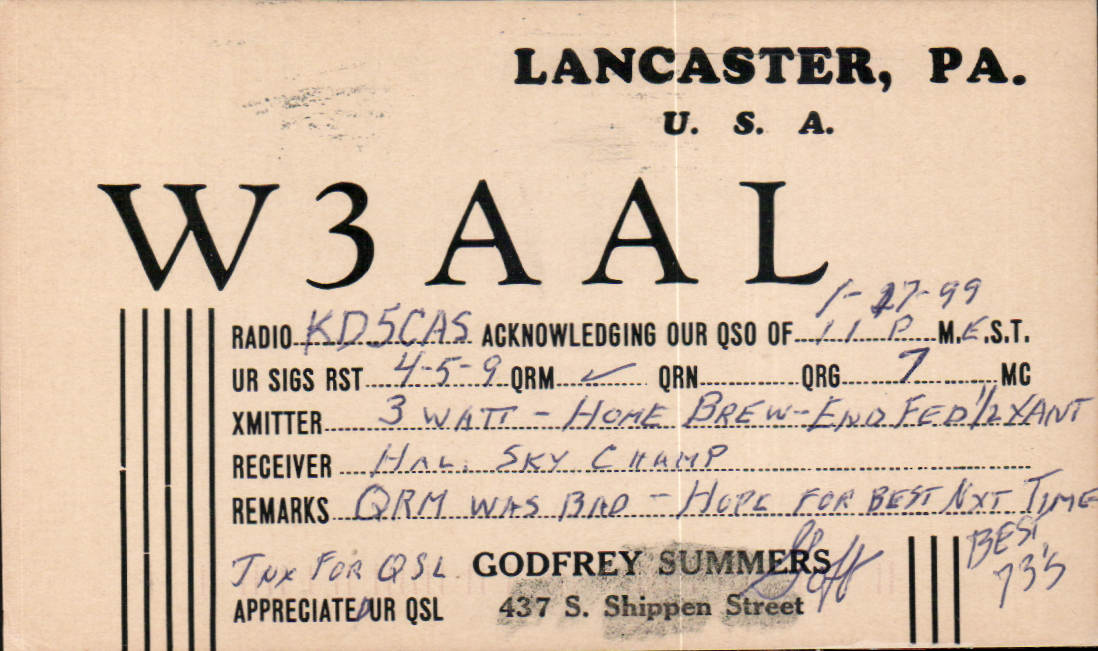 LANCASTER, PA.
U. S. A.
W3AAL
1-27-99
RADIO KD5CAS ACKNOWLEDGING OUR QSO OF 11 P M.E.S.T.
UR SIGS RST 4-5-9 QRM ✓ QRN QRG 7 MC
XMITTER 3 WATT - HOME BREW - END FED 1/2 λ ANT
RECEIVER HAL. SKY CHAMP
REMARKS QRM WAS BAD - HOPE FOR BEST NXT TIME
TNX FOR QSL GODFREY SUMMERS BEST
APPRECIATED UR QSL 437 S. Shippen Street 73's